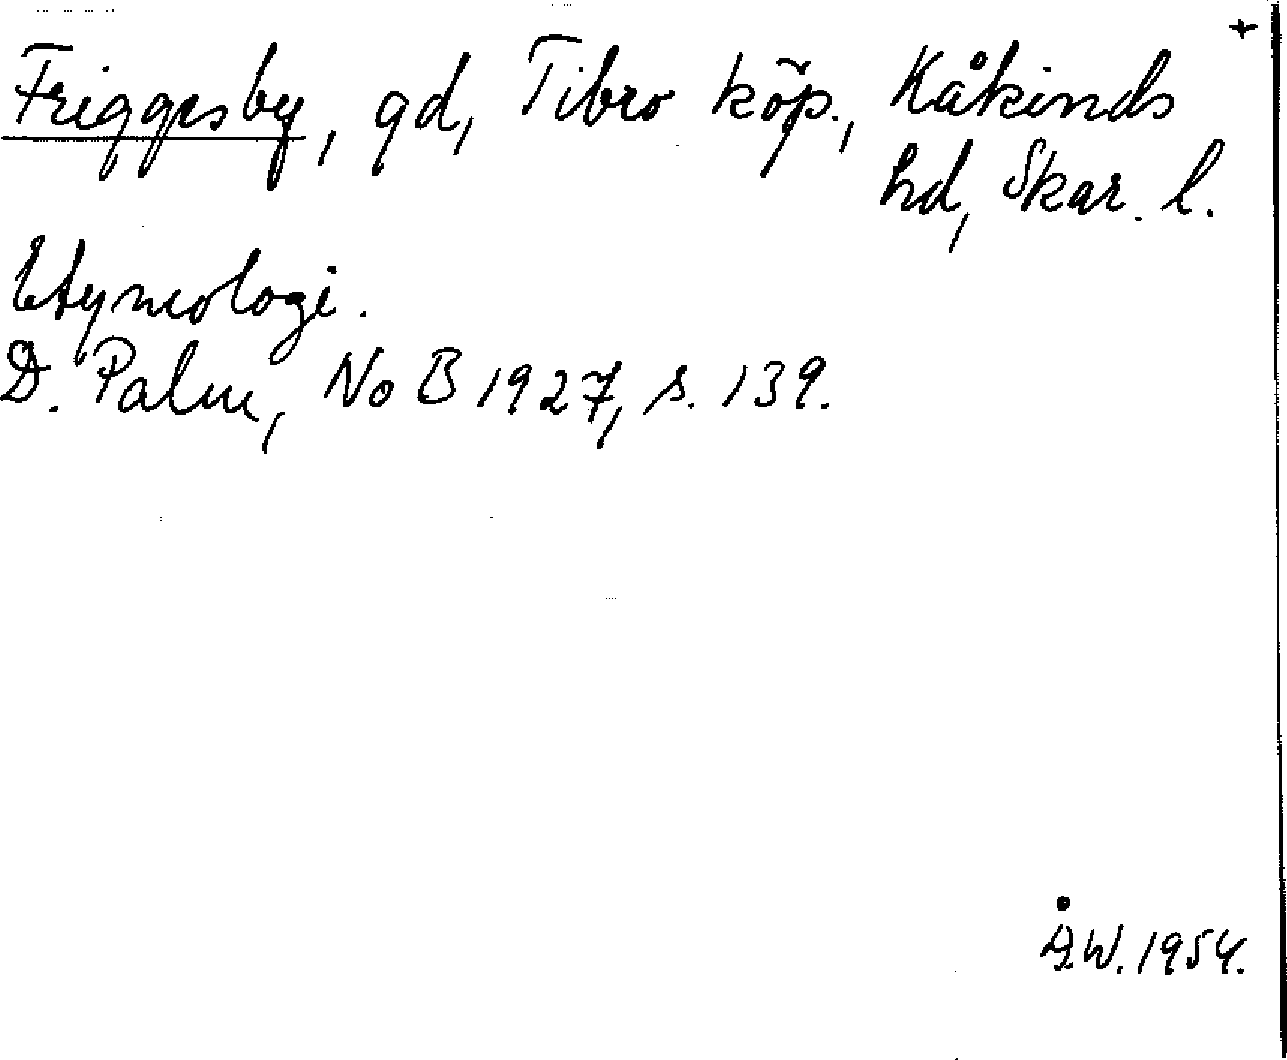 +
Friggesby, gd, Tibro köp., Kåkinds
hd, Skar. l.
Etymologi.
D. Palm, NoB 1927, s. 139.
ÅW. 1954.